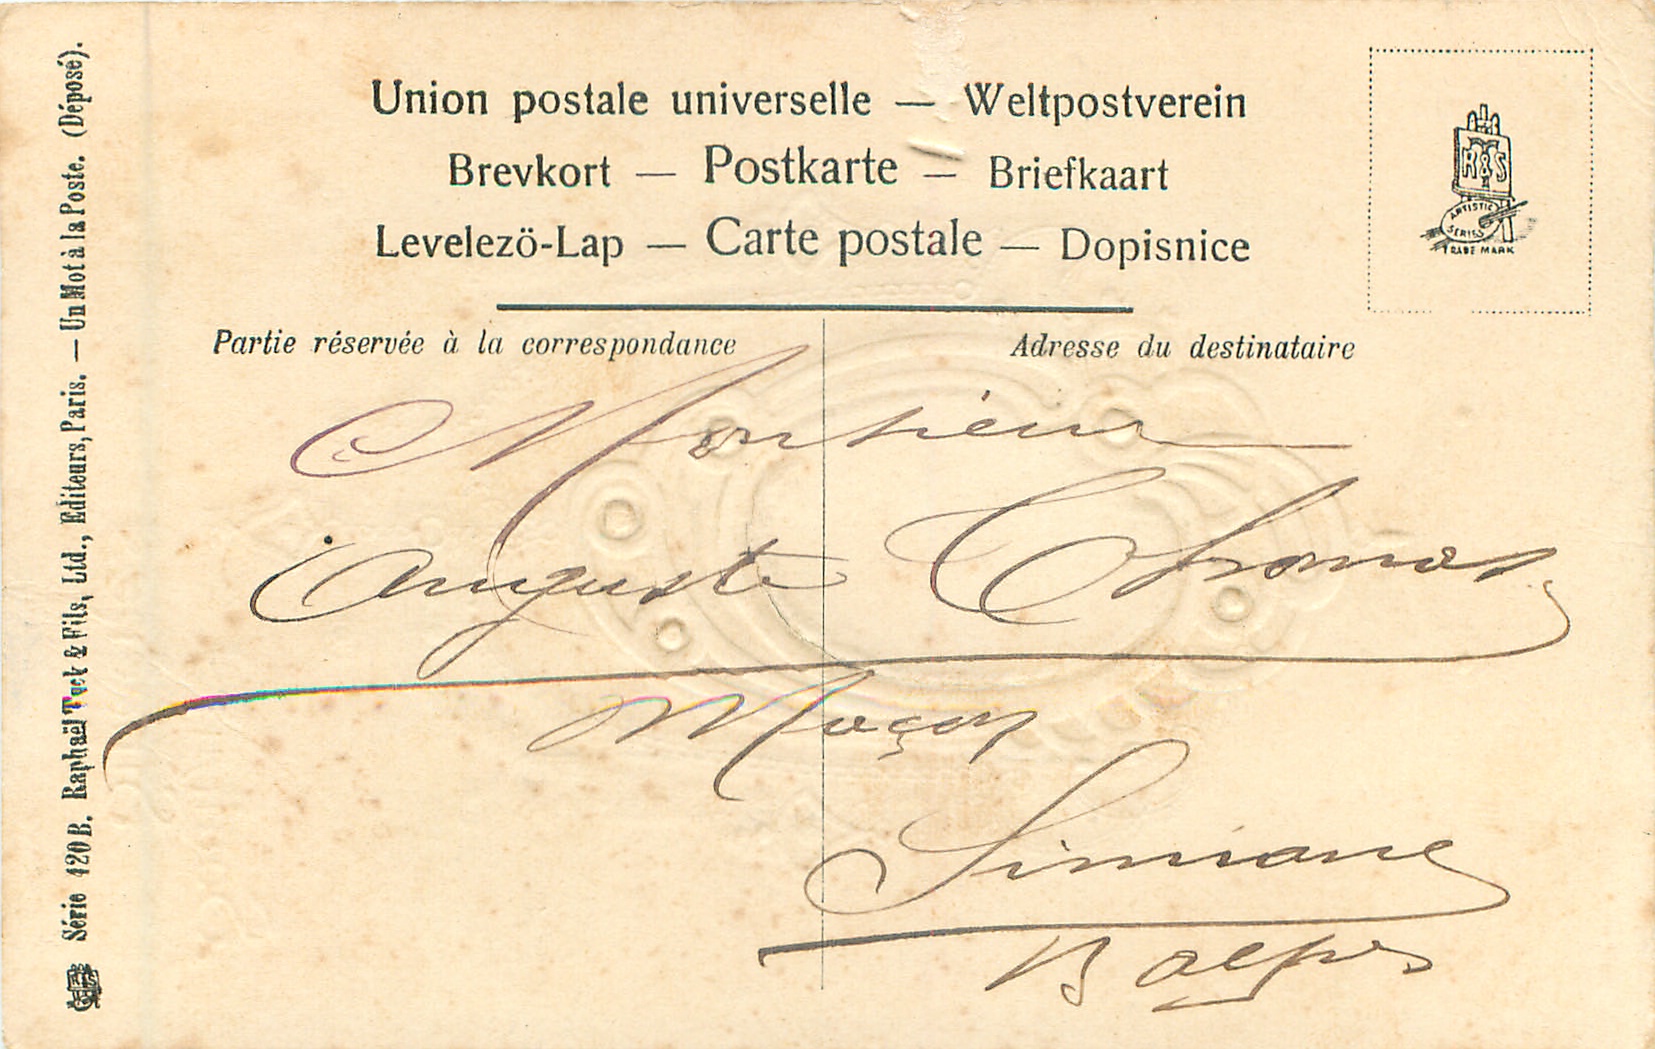 Union postale universelle — Weltpostverein
Brevkort — Postkarte — Briefkaart
Levelezö-Lap — Carte postale — Dopisnice
R & S
ARTISTIC
SERIES
TRADE MARK
Partie réservée à la correspondance
Adresse du destinataire
Monsieur
Auguste Thomas
Maçon
Simiane
B alpes
Série 120 B. Raphaël Tuck & Fils, Ltd., Editeurs, Paris. — Un Mot à la Poste. (Déposé).